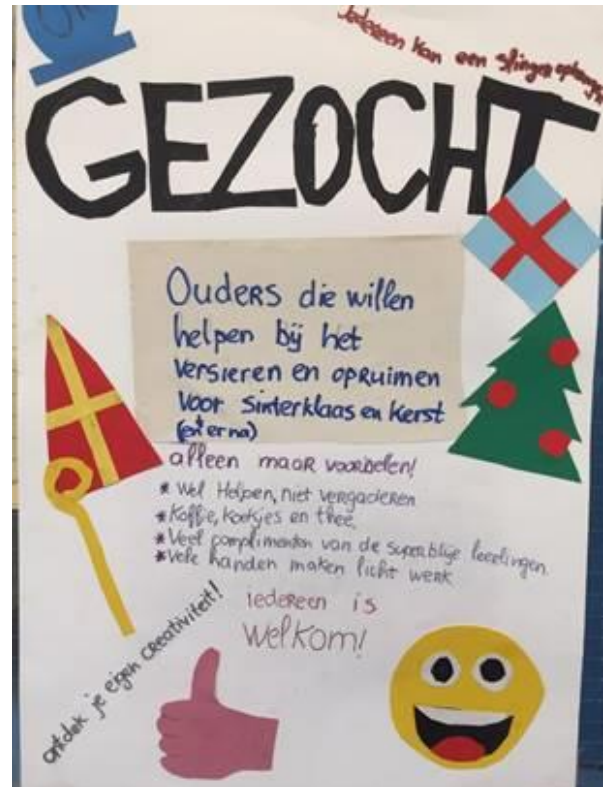 Iedereen kan een slinger ophangen
GEZOCHT
Ouders die willen
helpen bij het
versieren en opruimen
voor Sinterklaas en Kerst
(en erna)
alleen maar voordelen!
* Wel Helpen, niet vergaderen
* Koffie, koekjes en thee,
* Veel complimenten van de superblije leerlingen
* Vele handen maken licht werk
iedereen is
welkom!
ontdek je eigen creativiteit!